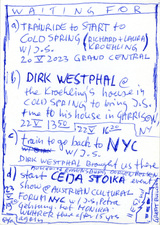 WAITING FOR
a) TRAINRIDE to START to
COLD SPRING (RICHARD + LAURA)
W/ J.S. KROEHLING)
20 V 2023 GRAND CENTRAL
b) DIRK WESTPHAL @
the Kroehling's house in
COLD SPRING to BRING J.S.
+ me to his house in GARRISON,
22 V 13 50 NY
c) train to go back to NYC
W/ J.S.
DIRK WESTPHAL brought us there
d) start CEIJA STOIKA
show @ AUSTRIAN CULTURAL
FORUM NYC w/ J.S.
after 15 yrs